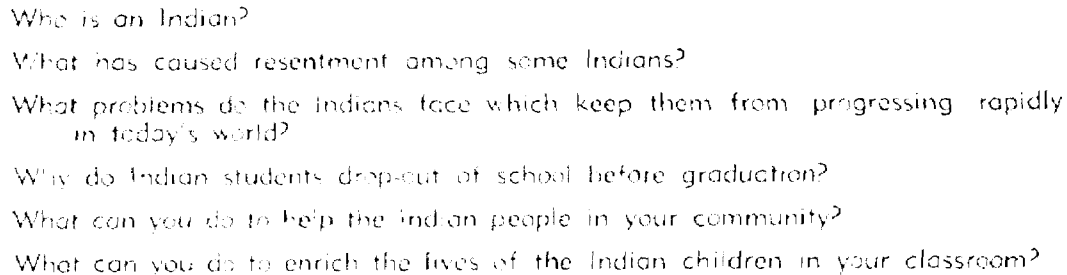 Who is an Indian?
What has caused resentment among some Indians?
What problems do the Indians face which keep them from progressing rapidly
in today's world?
Why do Indian students drop-out of school before graduation?
What can you do to help the Indian people in your community?
What can you do to enrich the lives of the Indian children in your classroom?